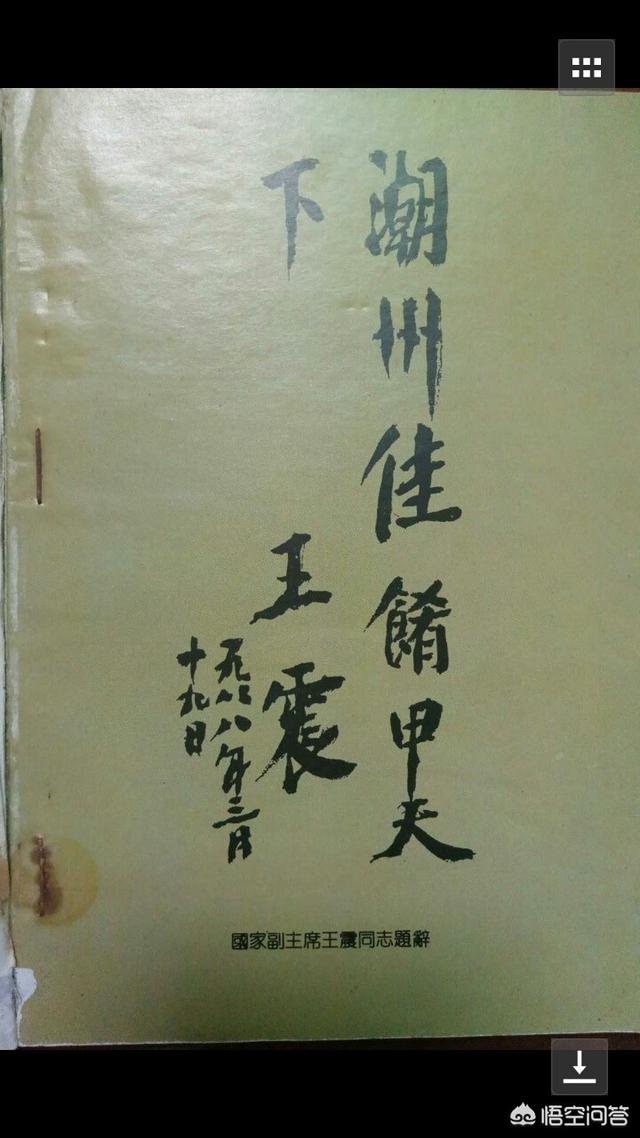 潮州佳餚甲天
下
王震
一九八八年三月
十九日
國家副主席王震同志題辭
悟空问答